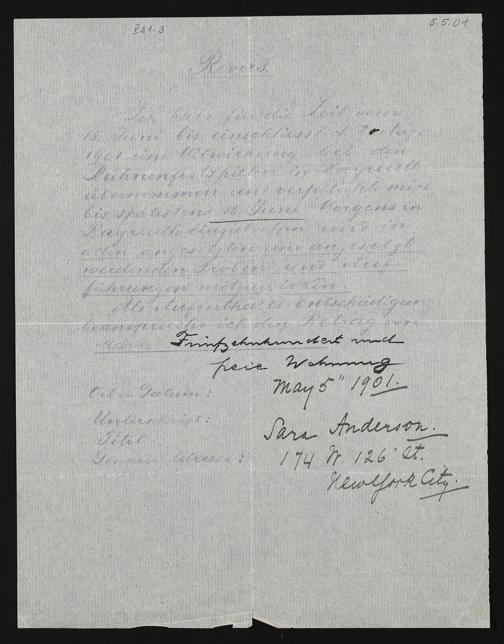 5.5.01
Revers.
Ich habe für die Zeit vom
15. Juni bis einschliesslich 20. Aug.
1901 eine Mitwirkung bei den
Bühnenfestspielen in Bayreuth
übernommen und verpflichte mich
bis spätestens 15. Juni Morgens in
Bayreuth einzutreffen und in
allen angesetzten und
werdenden Proben und Auf-
führungen mitzuwirken.
Als Aufenthalts-Entschädigung
beanspruche ich den Betrag von
Mark Fünfzehnhundert und
freie Wohnung
May 5" 1901.
Ort u. Datum:
Unterschrift: Sara Anderson.
Titel
Genaue Adresse: 174 W 126" St.
New York City.